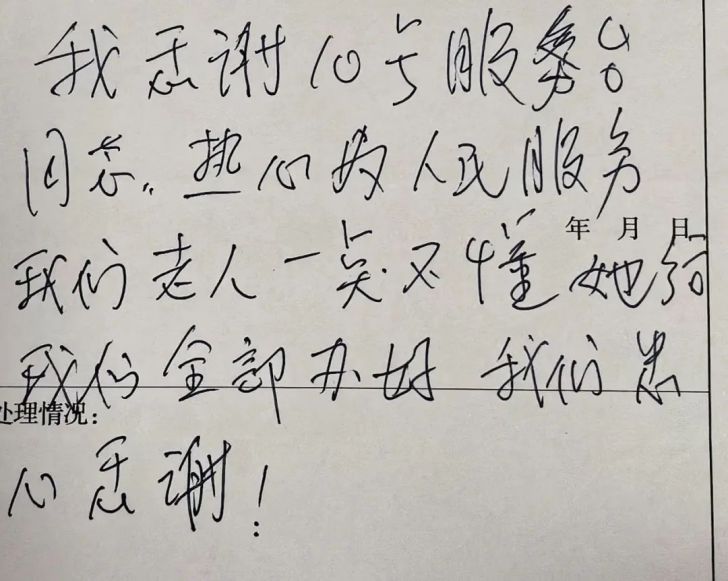 我感谢10号服务台
同志,,热心为人民服务
年 月 日
我们老人一点不懂 她给
我们全部办好 我们忠
处理情况:
心感谢!